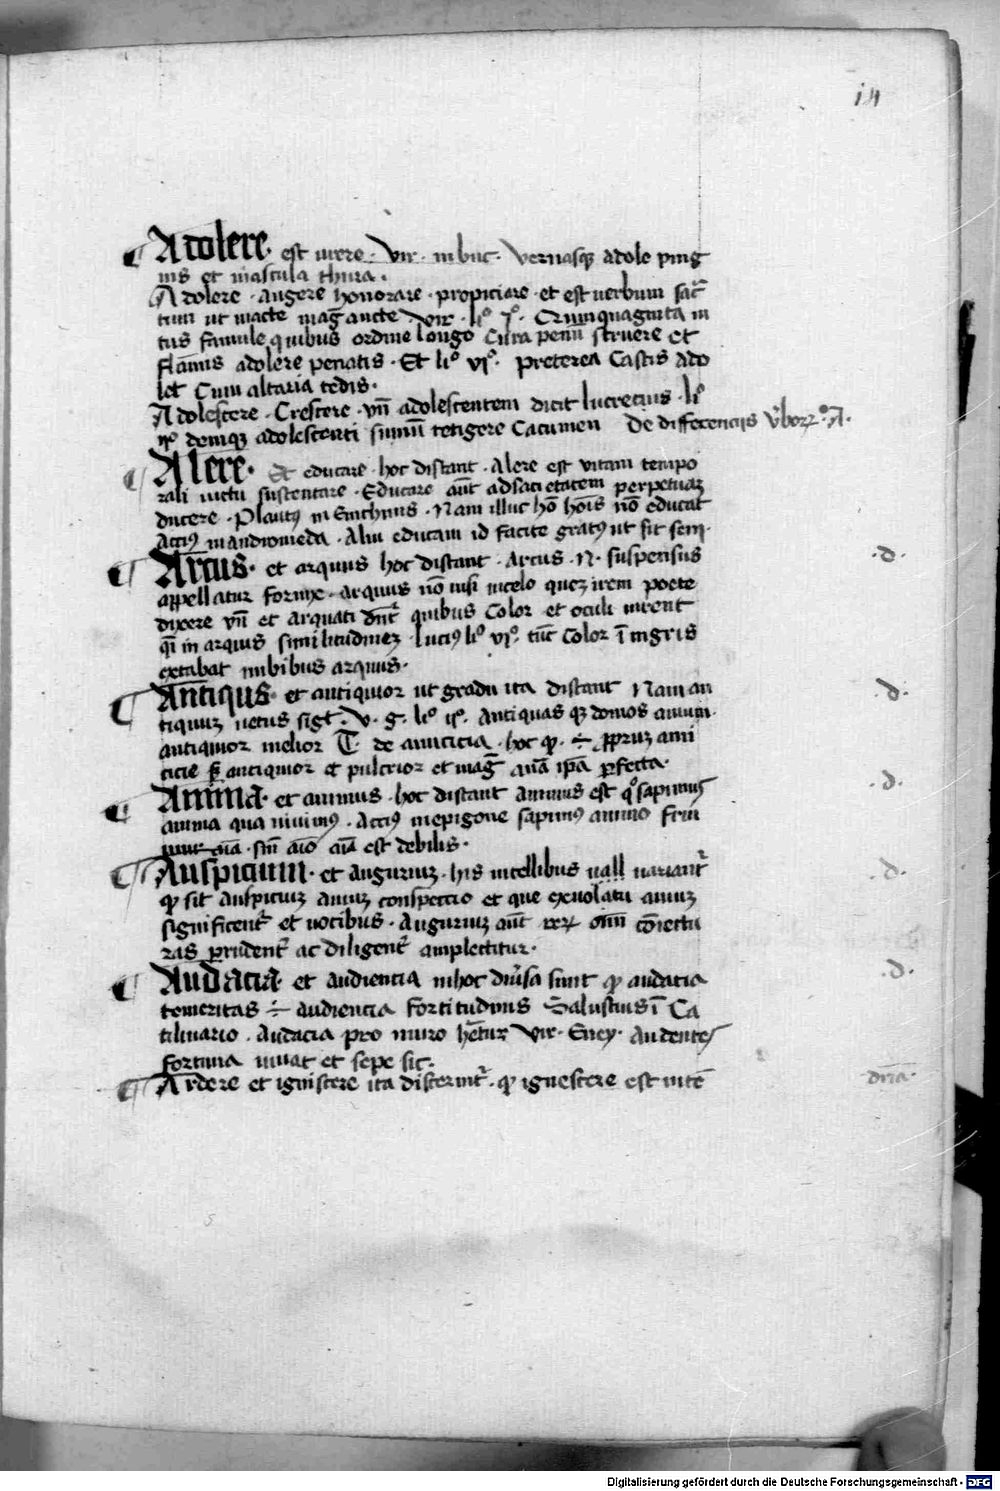 14
¶ Adolere · est urere · Vir · in buc · Vernasq adole ping
uis et mascula thura ·
Adolere · augere honorare · propiciare · et est uerbum sac
tum ut macte mag aucte · Vir · li° j° · Quinquaginta in
tus famule quibus ordine longo Cura penu struere et
flamis adolere penatis · Et li° vj° · preterea Castis ado
let Cum altaria tedis ·
Adolescere · Crescere · vn adolescentem dicit lucretius · li°
ij° deniq adolescenti sumu tetigere Cacumen De differencijs A ·
¶ Alere · Et educare · hoc distant · Alere est vitam tempo
rali uictu sustentare · Educare aut ad sacietatem perpetuam
ducere · Plautus in · Nam illuc ho educat
Accius in andromeda · Alui educaui id facite gratus ut sit seni ·
¶ Arcus · et arquus hoc distant · Arcus · N · suspensus · d ·
appellatur fornix · arquus no nisi in celo quez irem poete
dixere vn et Arquati quibus Color et oculi uirent
qi in arquus similitudinez · Lucius li° vj° · tuc Color i nigris
extabat nubibus arquus ·
¶ Antiqus · et antiquior ut gradu ita distant Nam an · d ·
tiquuz uetus sigt · V · g · li° ij° · Antiquas domos auium ·
antiquior melior T · de amicicia · hoc ÷ ami
cicie antiquior et pulcrior et mag ipa perfecta ·
¶ Anima · et animus · hoc distant animus est q° sapimus · d ·
anima qua uiuimus · Accius in epigone sapimus animo frui
mur aia · sin aio aia est debilis ·
¶ Auspicium · et auguriuz · his intellibus uall uariant · d ·
sit auspiciuz auiuz conspectio et que ex uolatu auiuz
significent et uocibus · Auguriuz aut coniectu
ras prudent ac diligent amplectitur ·
¶ Audacia · et audiencia in hoc diusa sunt audacia · d ·
temeritas ÷ audiencia fortitudinis Salustius i Ca
tilinario · Audacia pro muro hetur Vir · Eney · Audentes
fortuna iuuat et sepe sic ·
¶ Ardere et igniscere ita discernut · ignescere est inite dria ·
Digitalisierung gefördert durch die Deutsche Forschungsgemeinschaft - DFG